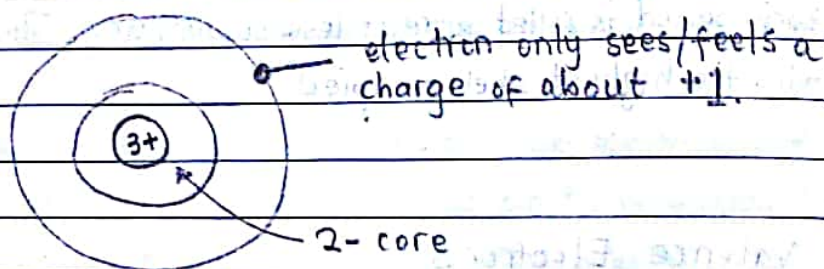 electron only sees/feels a
charge of about +1.
3+
2- core